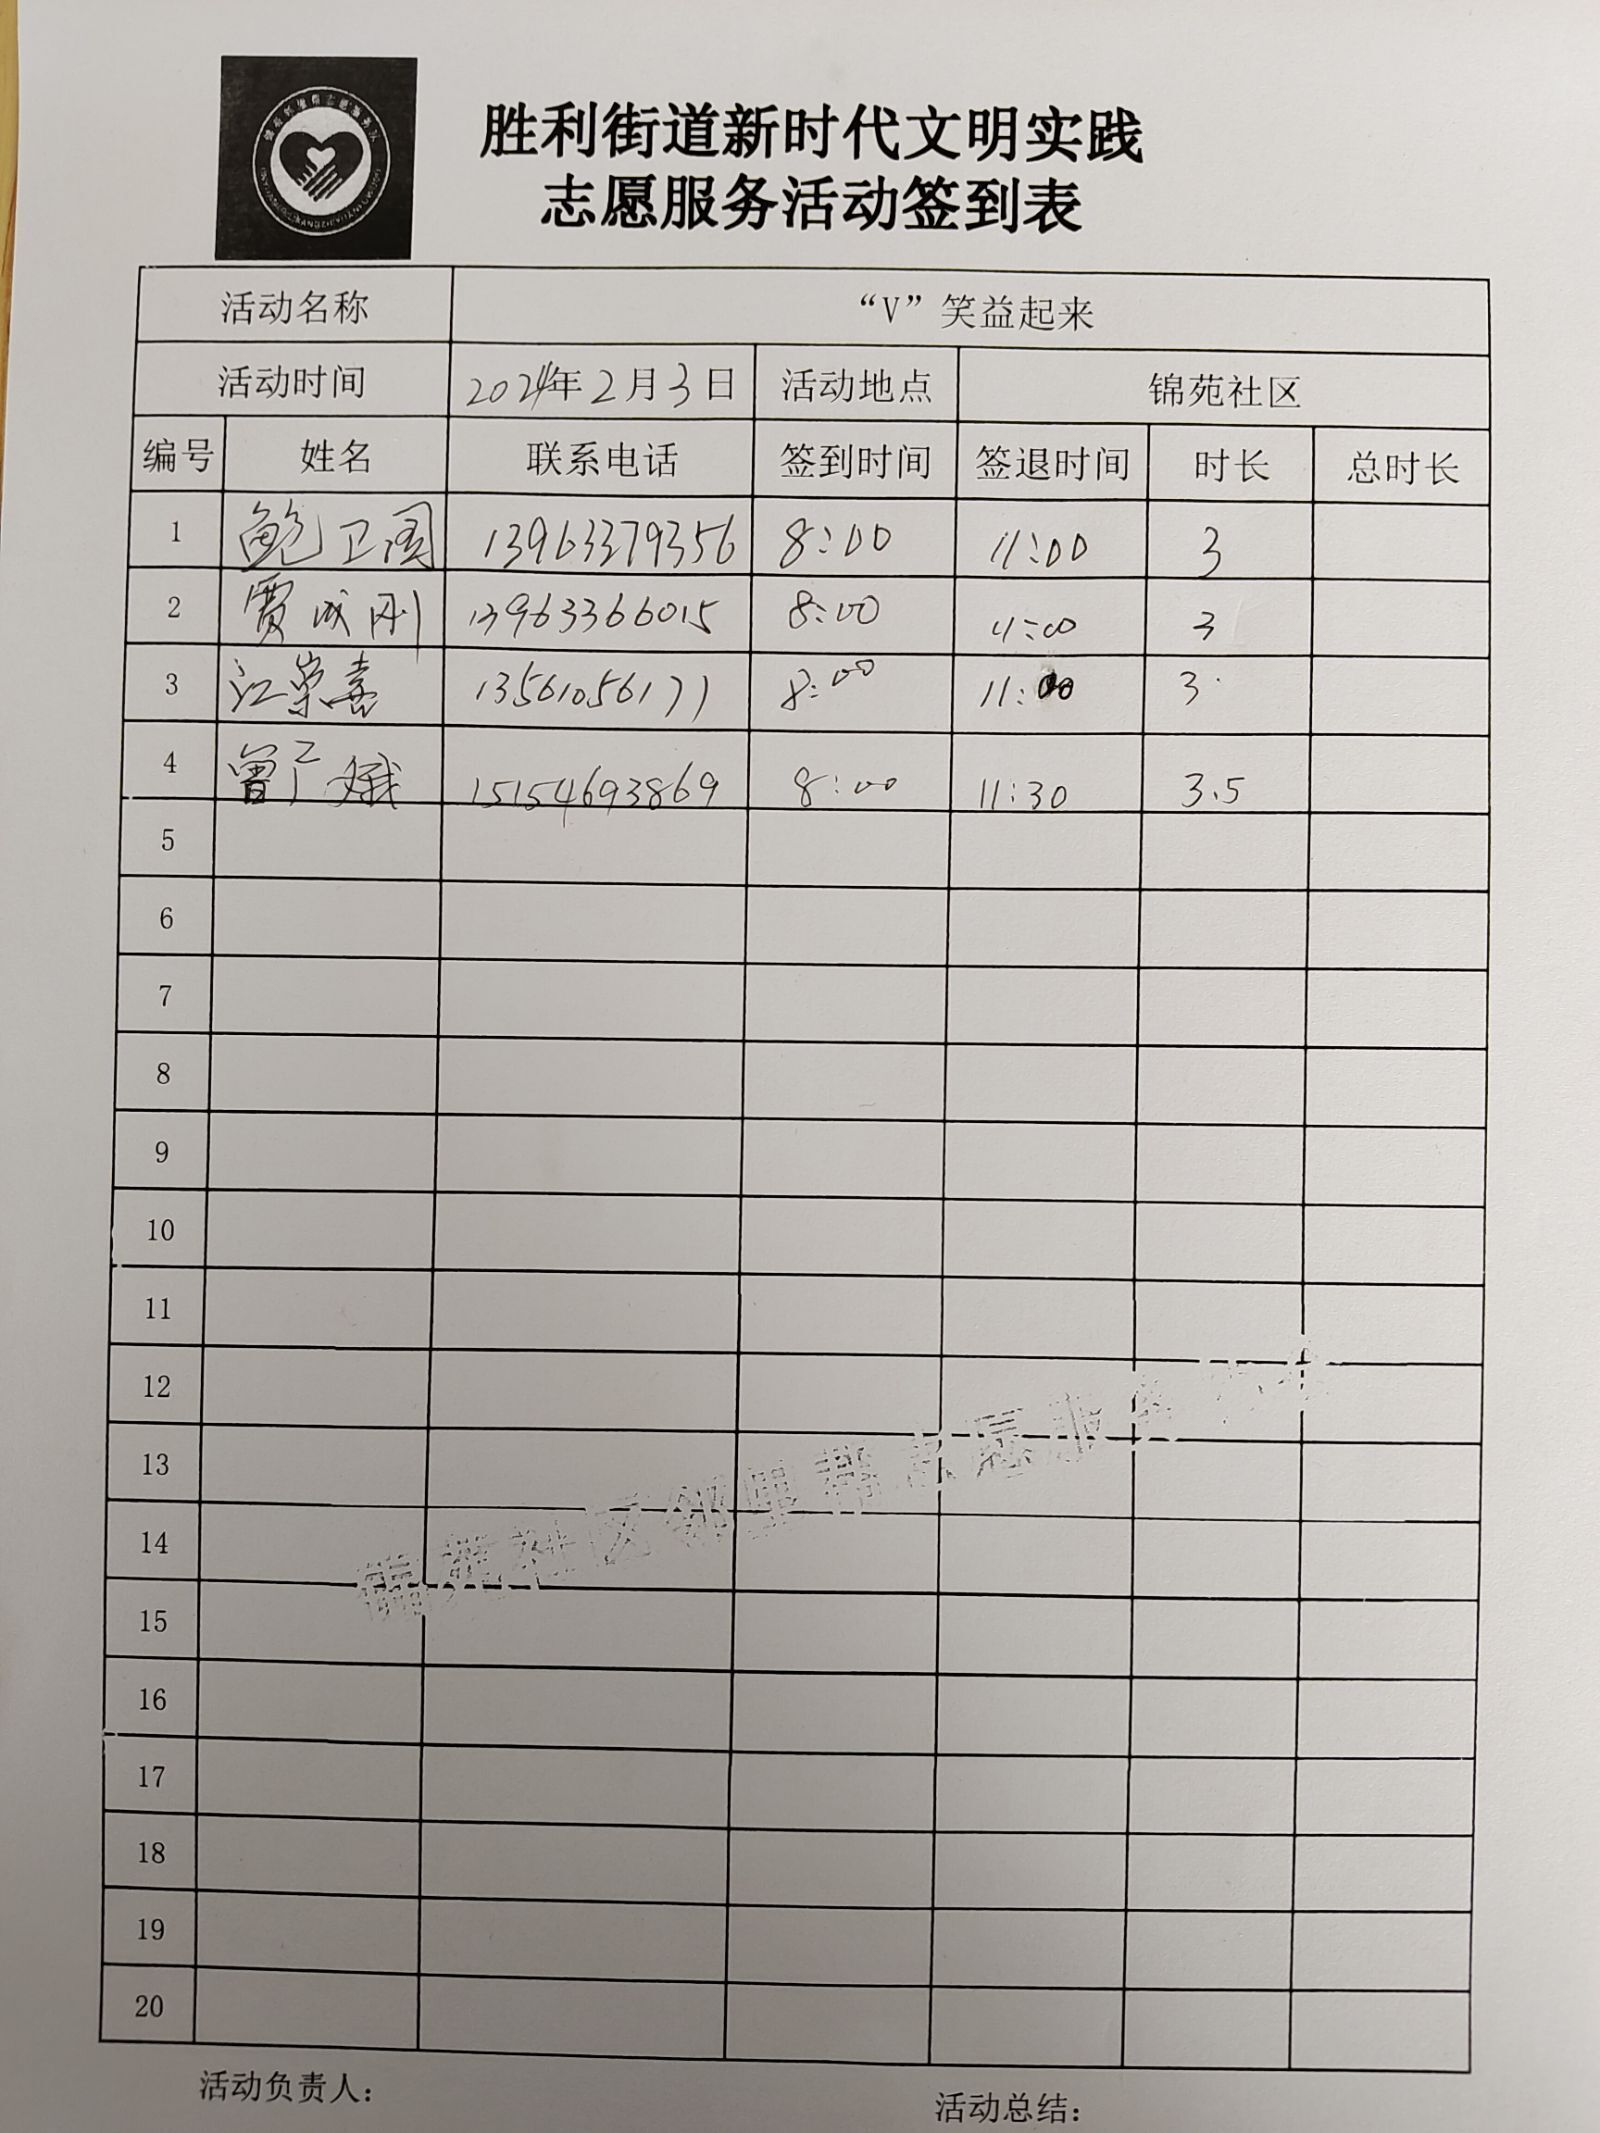 胜利街道新时代文明实践
志愿服务活动签到表
活动名称 “V”笑益起来
活动时间 2024年2月3日 活动地点 锦苑社区
编号 姓名 联系电话 签到时间 签退时间 时长 总时长
1 鲍卫国 13963379356 8:00 11:00 3
2 贾成刚 13963366015 8:00 11:00 3
3 江荣喜 13561056177 8:00 11:00 3
4 曾广娥 15154693869 8:00 11:30 3.5
5
6
7
8
9
10
11
12
13
14
15
16
17
18
19
20
锦苑社区邻里帮志愿服务
活动负责人： 活动总结：